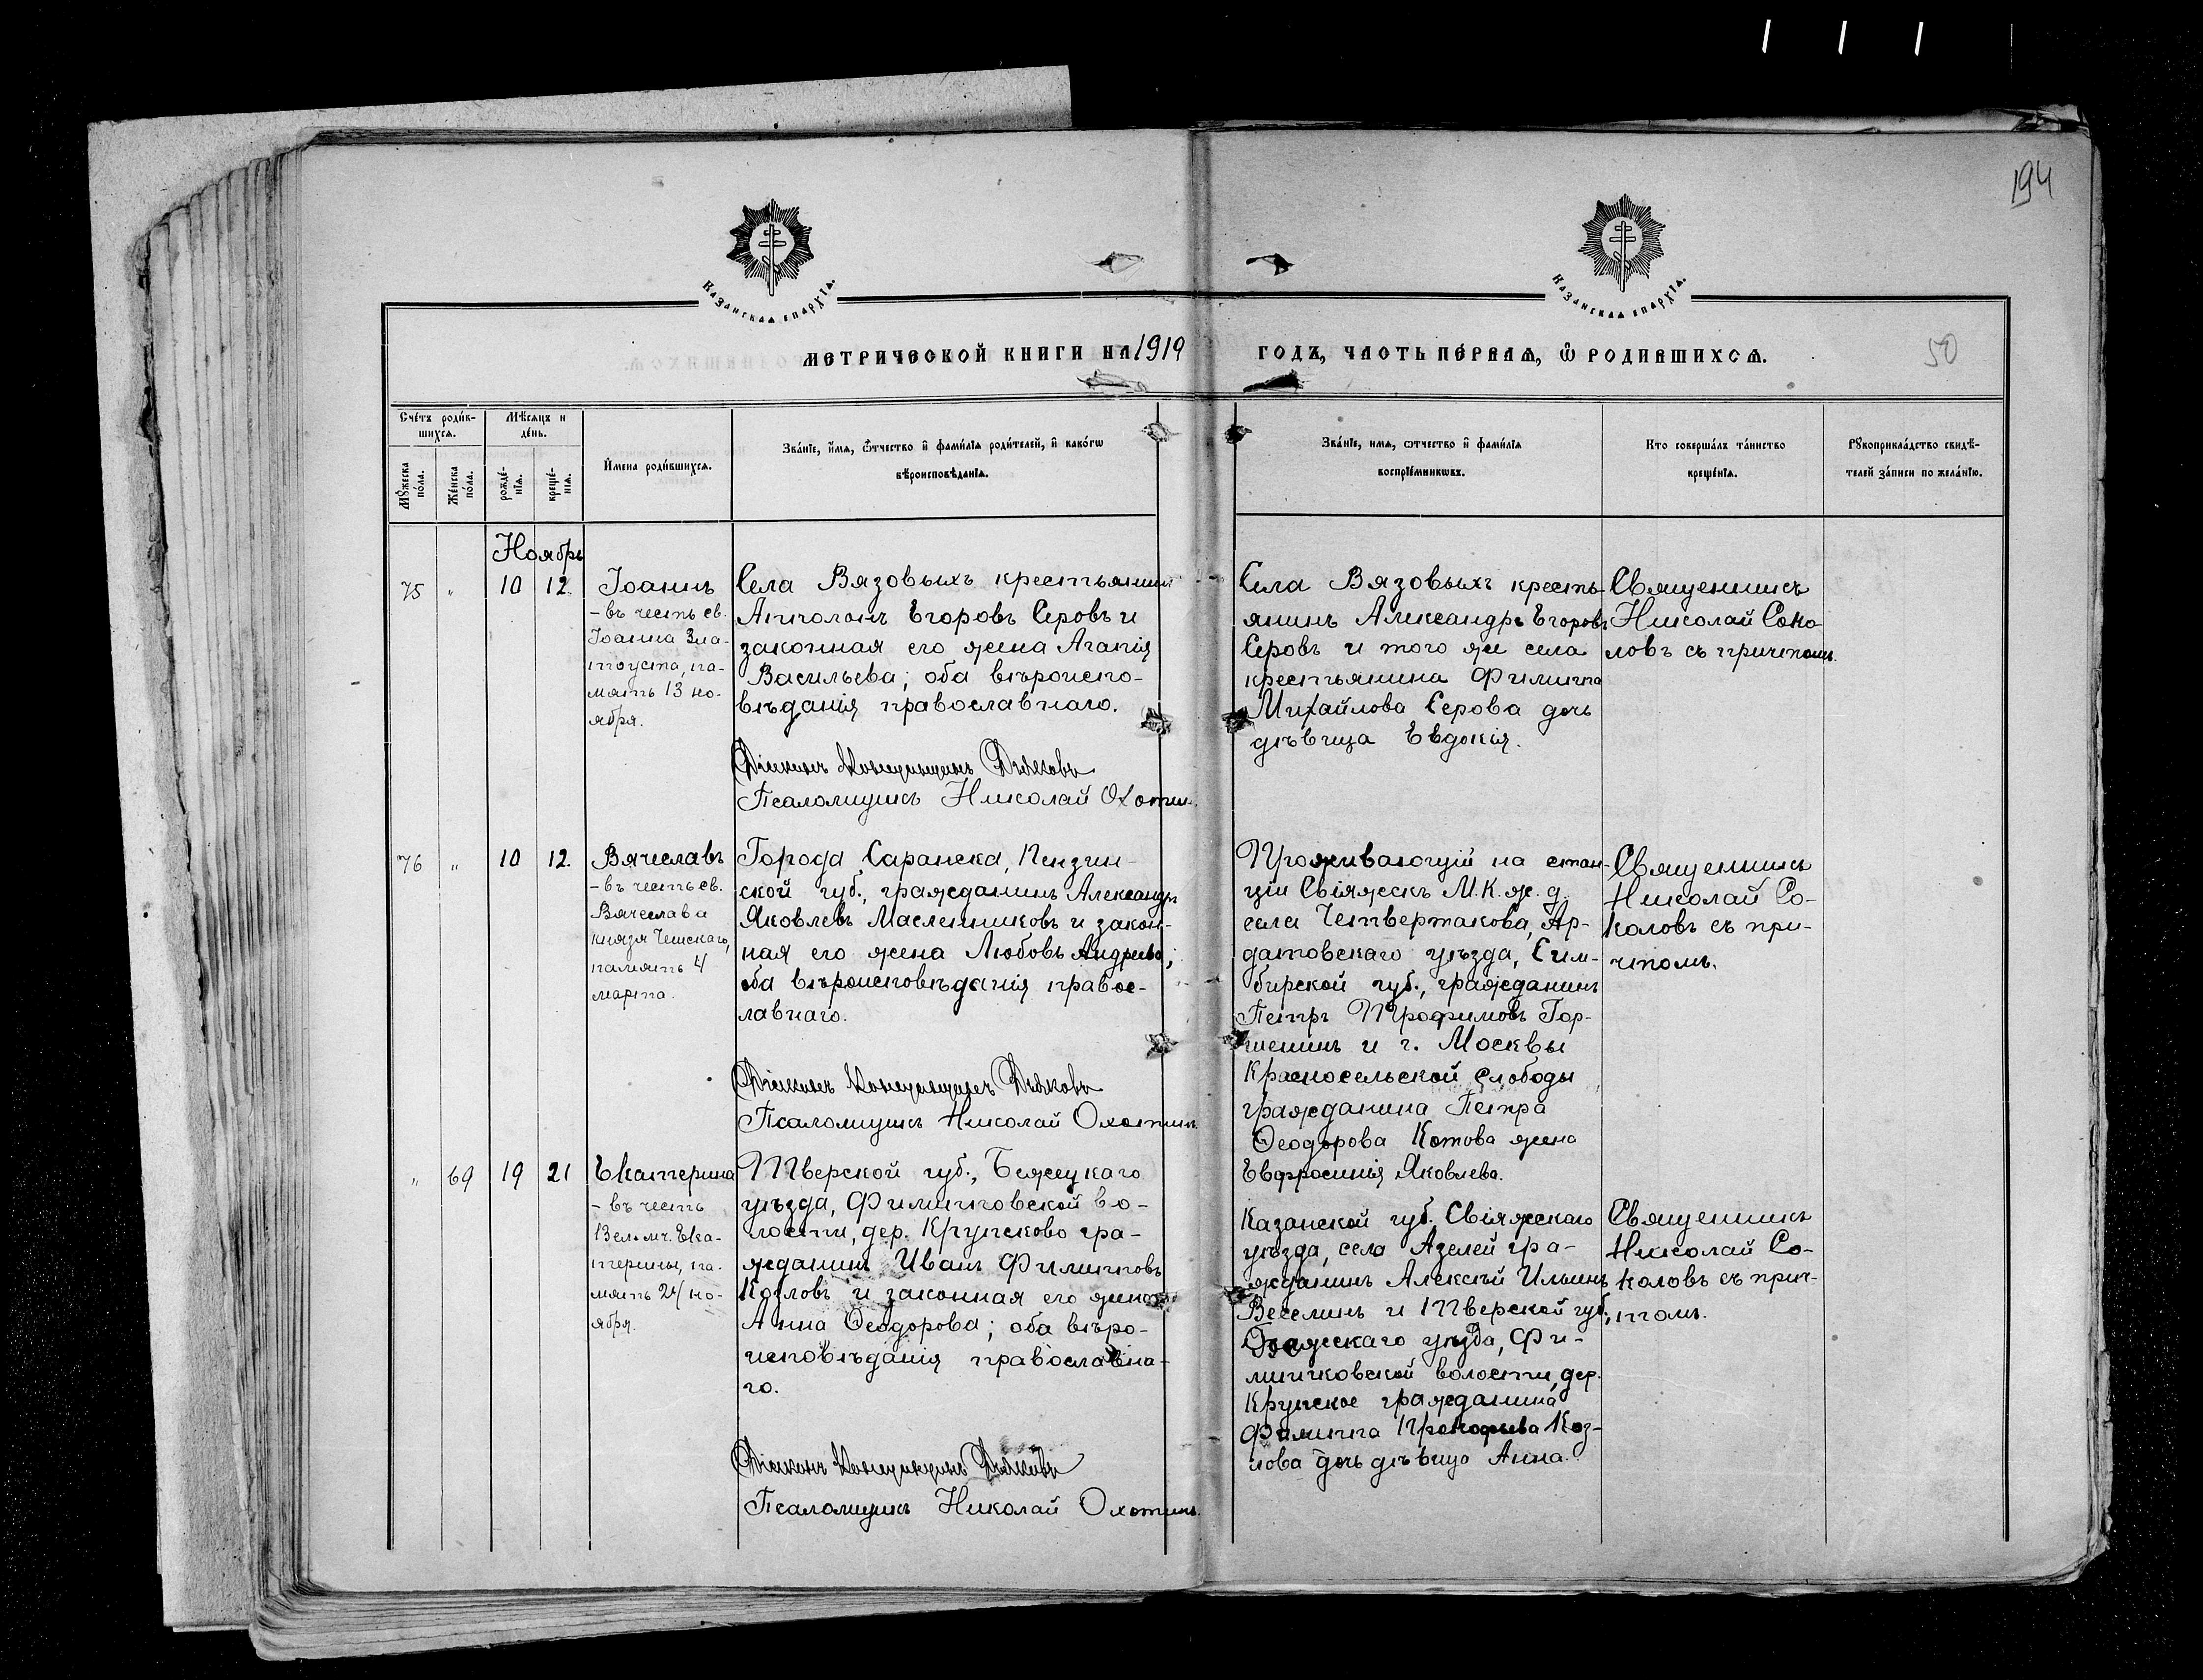 194
Казанскаѧ епархїѧ.
Казанскаѧ епархїѧ.
МЕТРИЧЕСКОЙ КНИГИ НА 1919
ГОДЪ, ЧАСТЬ ПЕ́РВАѦ, Ѿ РОДИВШИХСѦ.
50
Сче́тъ роди́в-
шихсѧ.
Мꙋ́жеска по́ла.
Же́нска по́ла.
Мѣ́сѧцъ и
де́нь.
рожде́-
нїѧ.
креще́-
нїѧ.
И҆мена роди́вшихсѧ.
Зва́нїе, и҆́мѧ, ѻ҆́тчество и҆ фами́лїѧ роди́телей, и҆ како́гѡ
вѣроисповѣ́данїѧ.
Зва́нїе, имѧ, ѻтчество и҆ фами́лїѧ
воспрїе́мникѡвъ.
Кто соверша́лъ та́инство
креще́нїѧ.
Рꙋкоприкла́дство свидѣ́-
телей за́писи по жела́нїю.
Ноябрь
75 " 10 12.
Іоаннъ
- въ честь св.
Іоанна Зла-
тоуста, па-
мять 13 но-
ября.
Села Вязовыхъ крестьянинъ
Апполонъ Егоровъ Серовъ и
законная его жена Агапія
Васильева; оба вѣроиспо-
вѣданія православнаго.
Діаконъ Константинъ Дьяковъ
Псаломщикъ Николай Охотин.
Села Вязовыхъ кресть-
янинъ Александръ Егоровъ
Серовъ и того же села
крестьянина Филиппа
Михайлова Серова дочь
дѣвица Евдокія.
Священникъ
Николай Соко-
ловъ съ причтомъ.
76 " 10 12.
Вячеславъ
- въ честь св.
Вячеслава
князя Чешскаго,
память 4
марта.
Города Саранска, Пензин-
ской губ., гражданинъ Александръ
Яковлевъ Масленниковъ и закон-
ная его жена Любовь Андреева;
оба вѣроисповѣданія правос-
лавнаго.
Діаконъ Константинъ Дьяковъ
Псаломщикъ Николай Охотинъ
Проживающій на стан-
ціи Свіяжскъ М. К. ж. д.
села Четвертакова, Ар-
датовскаго уѣзда, Сим-
бирской губ., гражданинъ
Петръ Трофимовъ Гор-
шенинъ и г. Москвы
Красносельской слободы
гражданина Петра
Ѳеодорова Котова жена
Евфросинія Яковлева.
Священникъ
Николай Со-
коловъ съ при-
чтомъ.
" 69 19 21
Екатерина
- въ честь
Велмч. Ека-
терины, па-
мять 24 но-
ября.
Тверской губ., Бежецкаго
уѣзда, Филипповской во-
лости, дер. Крупсково гра-
жданинъ Иванъ Филипповъ
Козловъ и законная его жена
Анна Ѳеодорова; оба вѣро-
исповѣданія православна-
го.
Діаконъ Константинъ Дьяковъ
Псаломщикъ Николай Охотинъ.
Казанской губ. Свіяжскаго
уѣзда, села Азелей гра-
жданинъ Алексѣй Ильинъ
Веселинъ и Тверской губ.,
уѣзда, Фи-
липповской волости, дер.
Крупское гражданина
Филиппа Прокофьева Коз-
лова дочь дѣвица Анна.
Священникъ
Николай Со-
коловъ съ прич-
томъ.